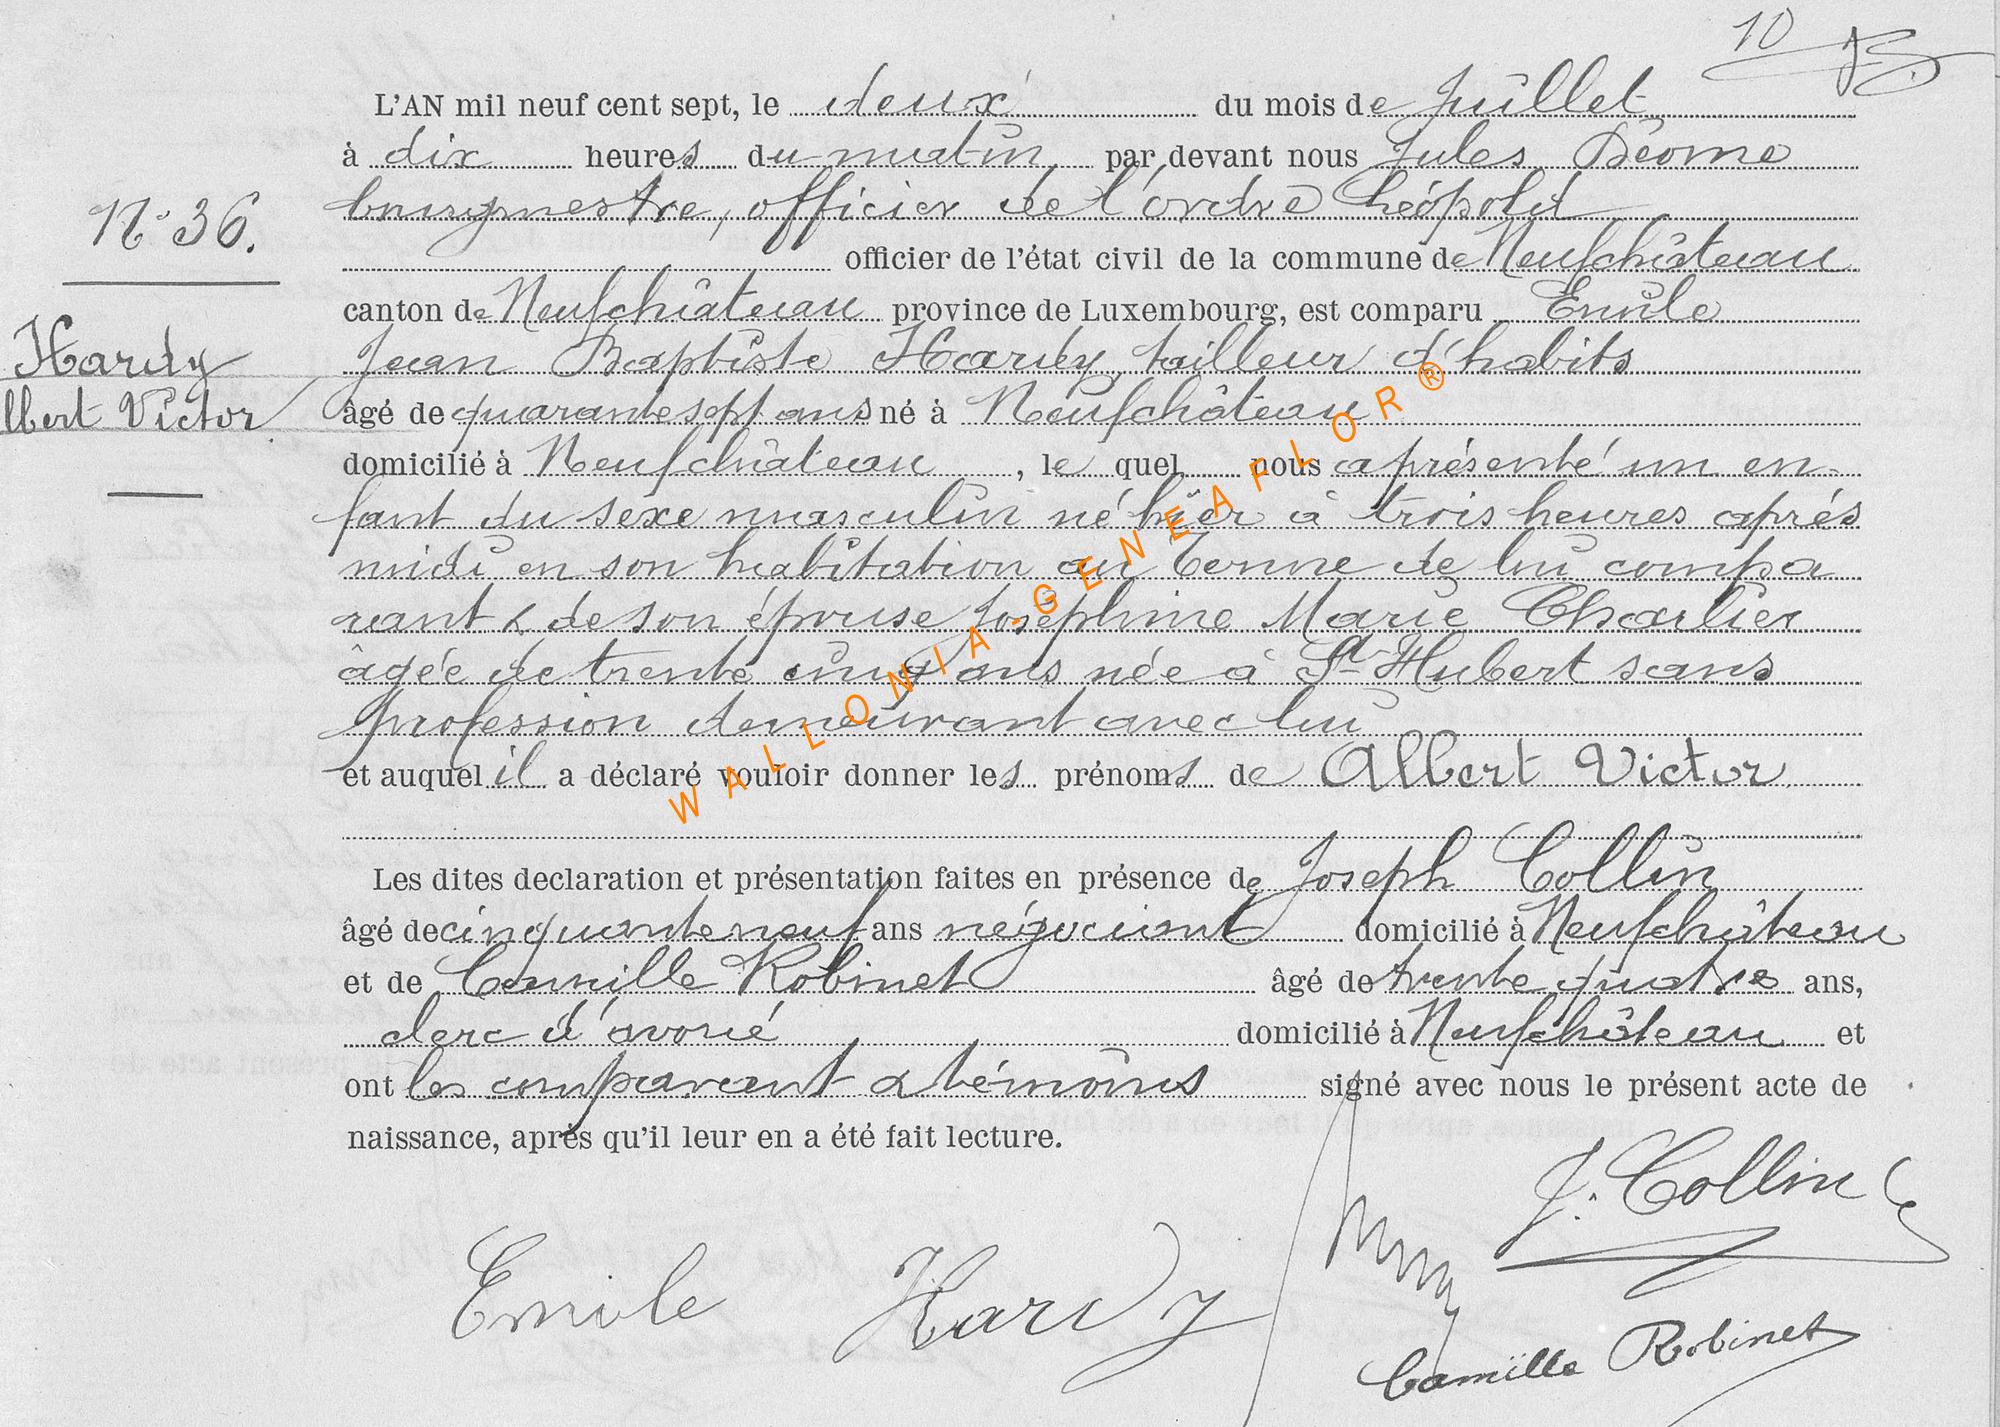 10
L'AN mil neuf cent sept, le deux du mois de Juillet
à dix heures du matin, par devant nous Jules Déome
bourgmestre, officier de l'ordre Léopold
N° 36.
officier de l'état civil de la commune de Neufchâteau
canton de Neufchâteau province de Luxembourg, est comparu Emile
Hardy
Jean Baptiste Hardy, tailleur d'habits
lbert Victor
âgé de quarante sept ans né à Neufchâteau
domicilié à Neufchâteau, le quel nous a présenté un en-
fant du sexe masculin né hier à trois heures après
midi en son habitation au Terme de lui compa
rant & de son épouse Joséphine Marie Charlier
âgée de trente cinq ans née à St Hubert sans
profession demeurant avec lui
et auquel il a déclaré vouloir donner les prénoms de Albert Victor
WALLONIA-GENEAFLOR®
Les dites declaration et présentation faites en présence de Joseph Collin
âgé de cinquante neuf ans négociant domicilié à Neufchâteau
et de Camille Robinet âgé de trente quatre ans,
clerc d'avoué domicilié à Neufchâteau et
ont les comparant & témoins signé avec nous le présent acte de
naissance, après qu'il leur en a été fait lecture.
J. Collin
Emile Hardy
Camille Robinet